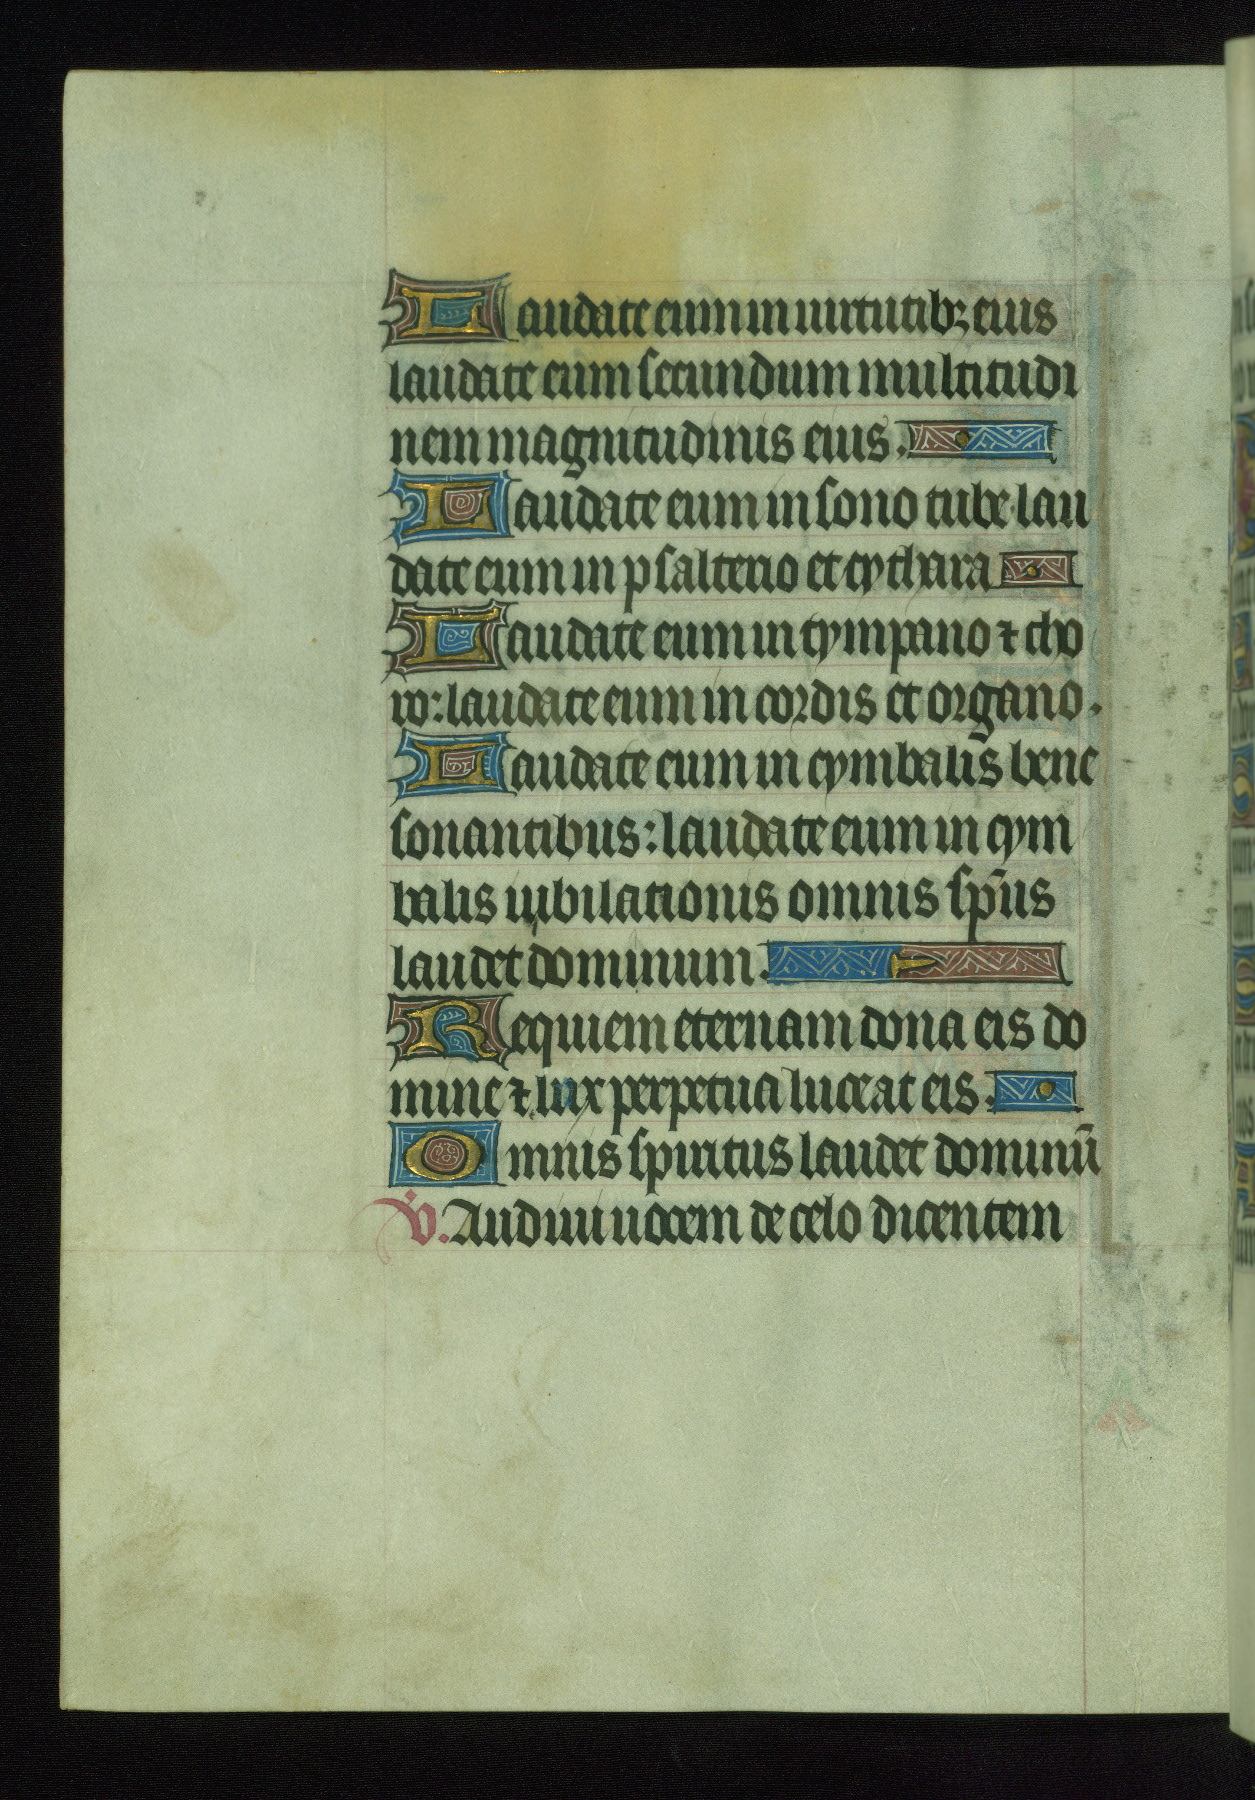 Laudate eum in uirtutibꝫ eius
laudate eum secundum multitudi
nem magnitudinis eius.
Laudate eum in sono tube lau
date eum in psalterio et cythara
Laudate eum in tympano ⁊ cho
ro: laudate eum in cordis et organo.
Laudate eum in cymbalis bene
sonantibus: laudate eum in cym
balis iubilationis omnis sp̄us
laudet dominum.
Requiem eternam dona eis do
mine ⁊ lux perpetua luceat eis.
Omnis spiritus laudet dominū
V. Audiui uocem de celo dicentem